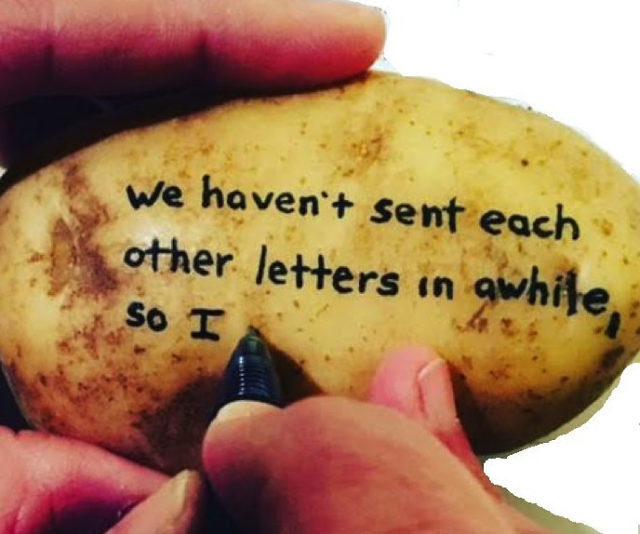 We haven't sent each
other letters in awhile,
so I